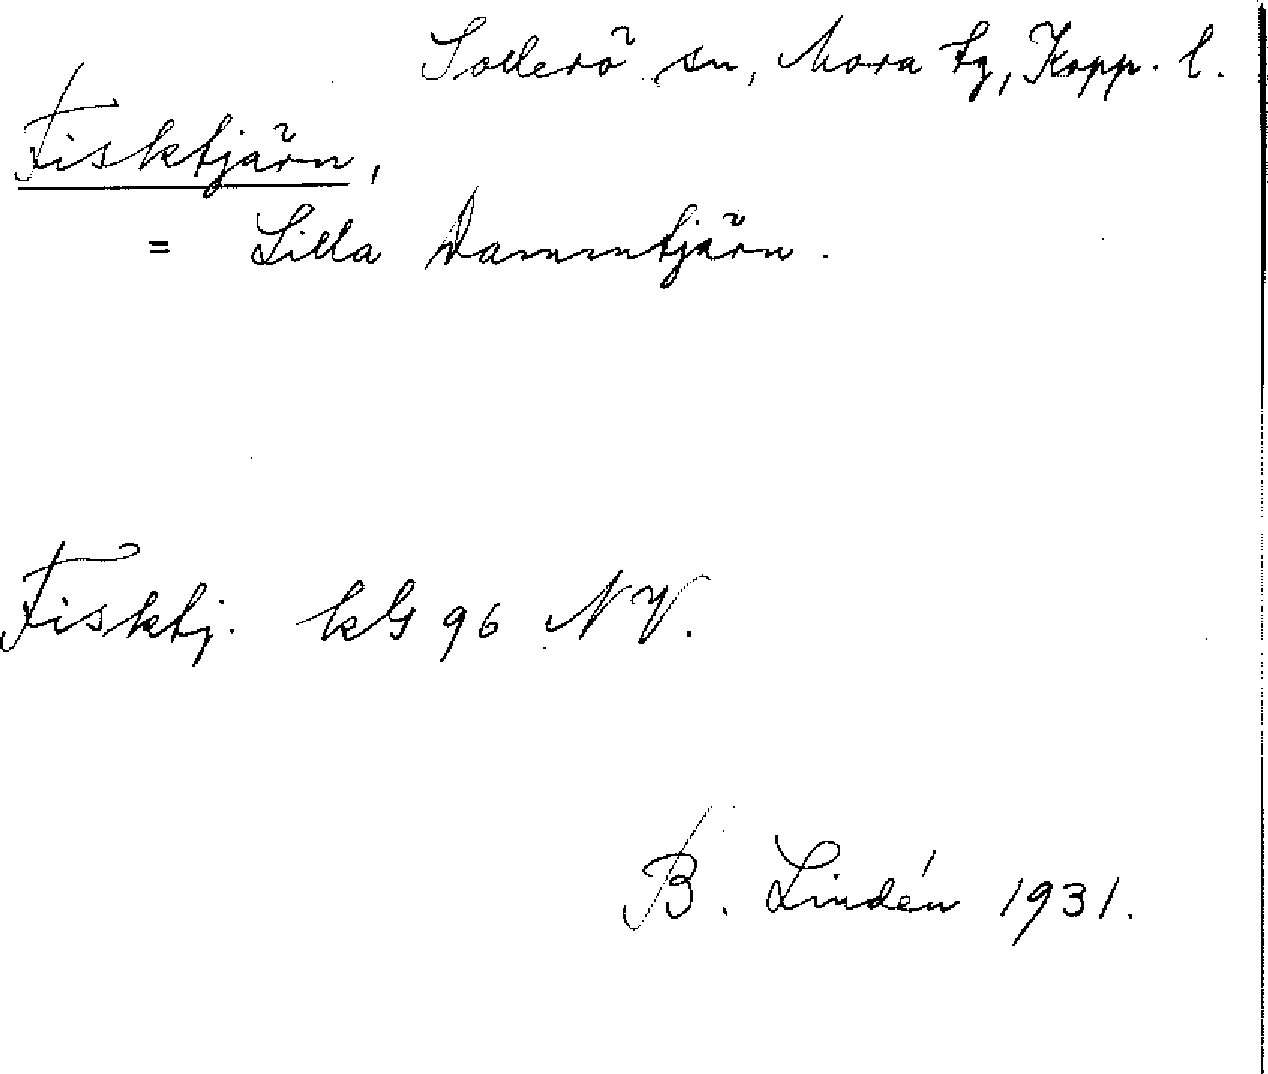 Sollerö sn, Mora tg, Kopp. l.
Fisktjärn,
= Lilla Dammtjärn.
Fisktj. kG 96 NV.
B. Lindén 1931.